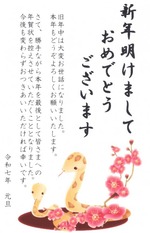 新年明けまして
おめでとう
ございます
旧年中は大変お世話になりました。
本年もどうぞよろしくお願いいたします。
さて、勝手ながら本年を最後として皆さまへの
年賀状を控えさせていただくことといたしました。
今後も変わらずおつきあいいただければ幸いです。
令和七年　元旦